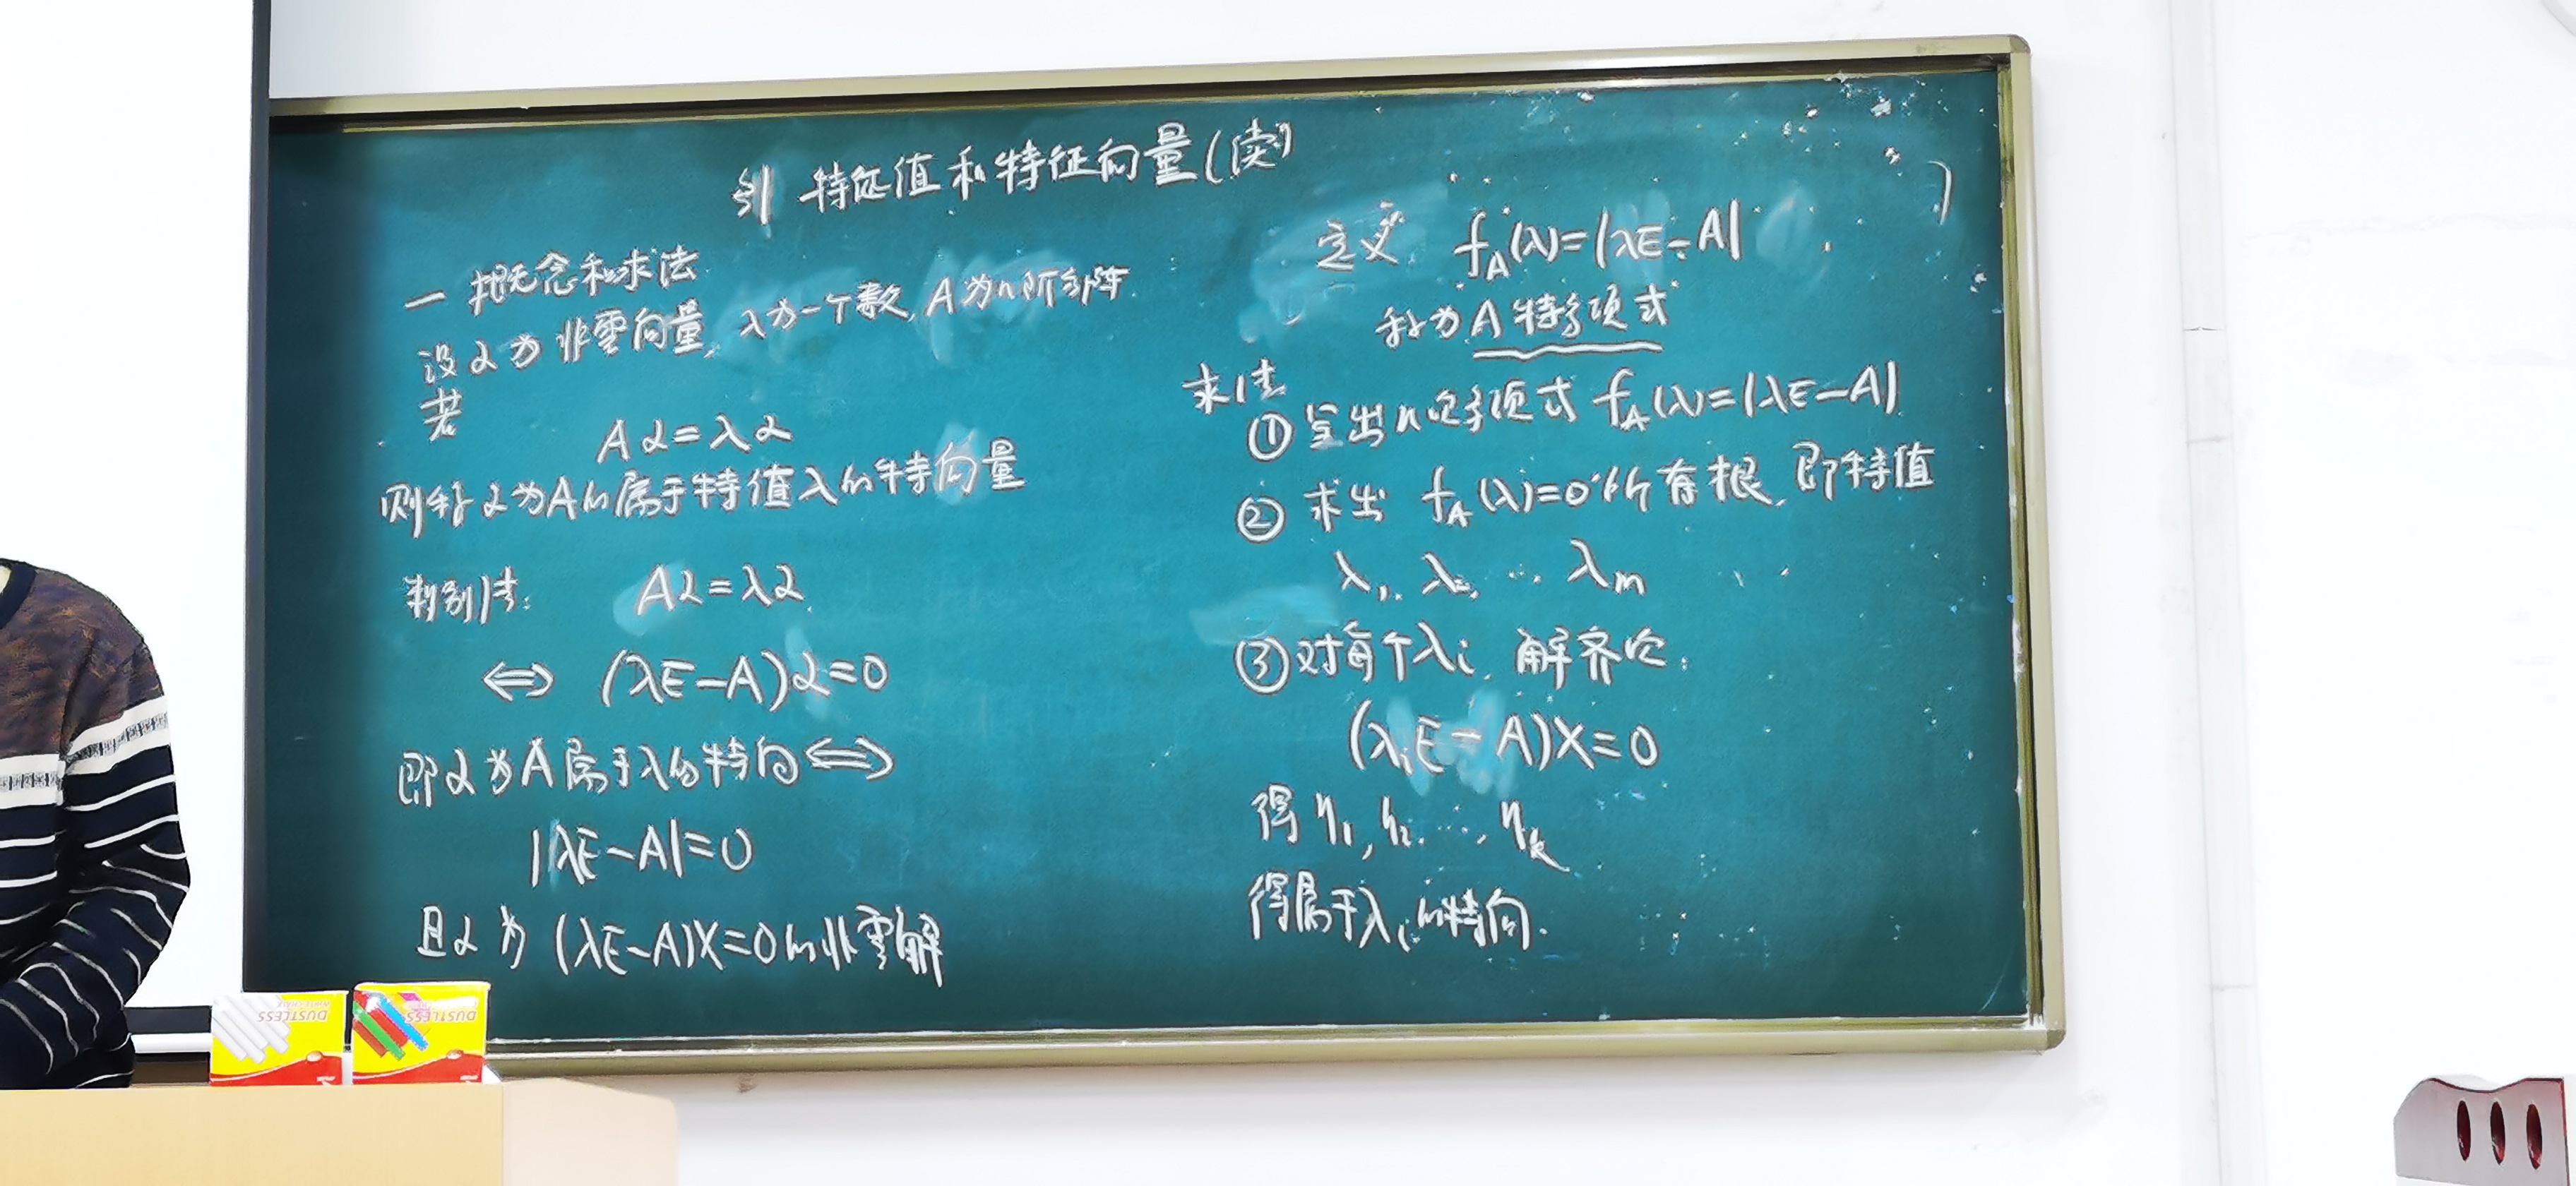 §1 特征值和特征向量(续)
一 概念和求法
设α为非零向量, λ为一个数, A为n阶矩阵.
若
Aα=λα
则称α为A的属于特值λ的特向量
判别法: Aα=λα
⇔ (λE-A)α=0
即α为A属于λ的特向⇔
|λE-A|=0
且α为 (λE-A)X=0的非零解
定义 f_A(λ)=|λE-A|
称为A特多项式
求法
① 写出n次多项式 f_A(λ)=|λE-A|
② 求出 f_A(λ)=0所有根, 即特值
λ₁, λ₂, …, λₘ
③ 对每个λᵢ 解齐次:
(λᵢE-A)X=0
得 η₁, η₂, …, ηₖ
得属于λᵢ的特向.
DUSTLESS
DUSTLESS